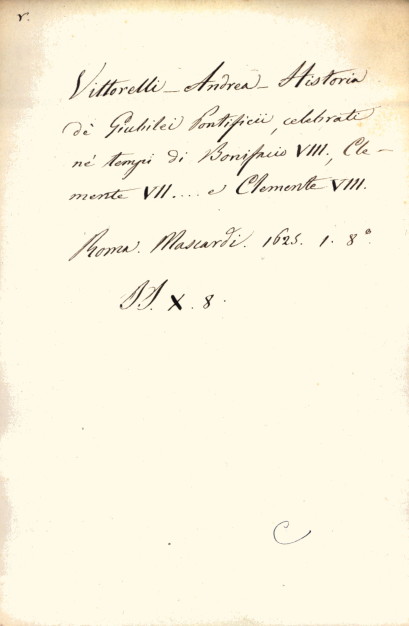 V.
Vittorelli - Andrea - Historia
de' Giubilei Pontificii, celebrati
ne' tempi di Bonifacio VIII, Cle-
mente VII.... e Clemente VIII.
Roma. Mascardi. 1625. 1. 8º.
X. 8.
C